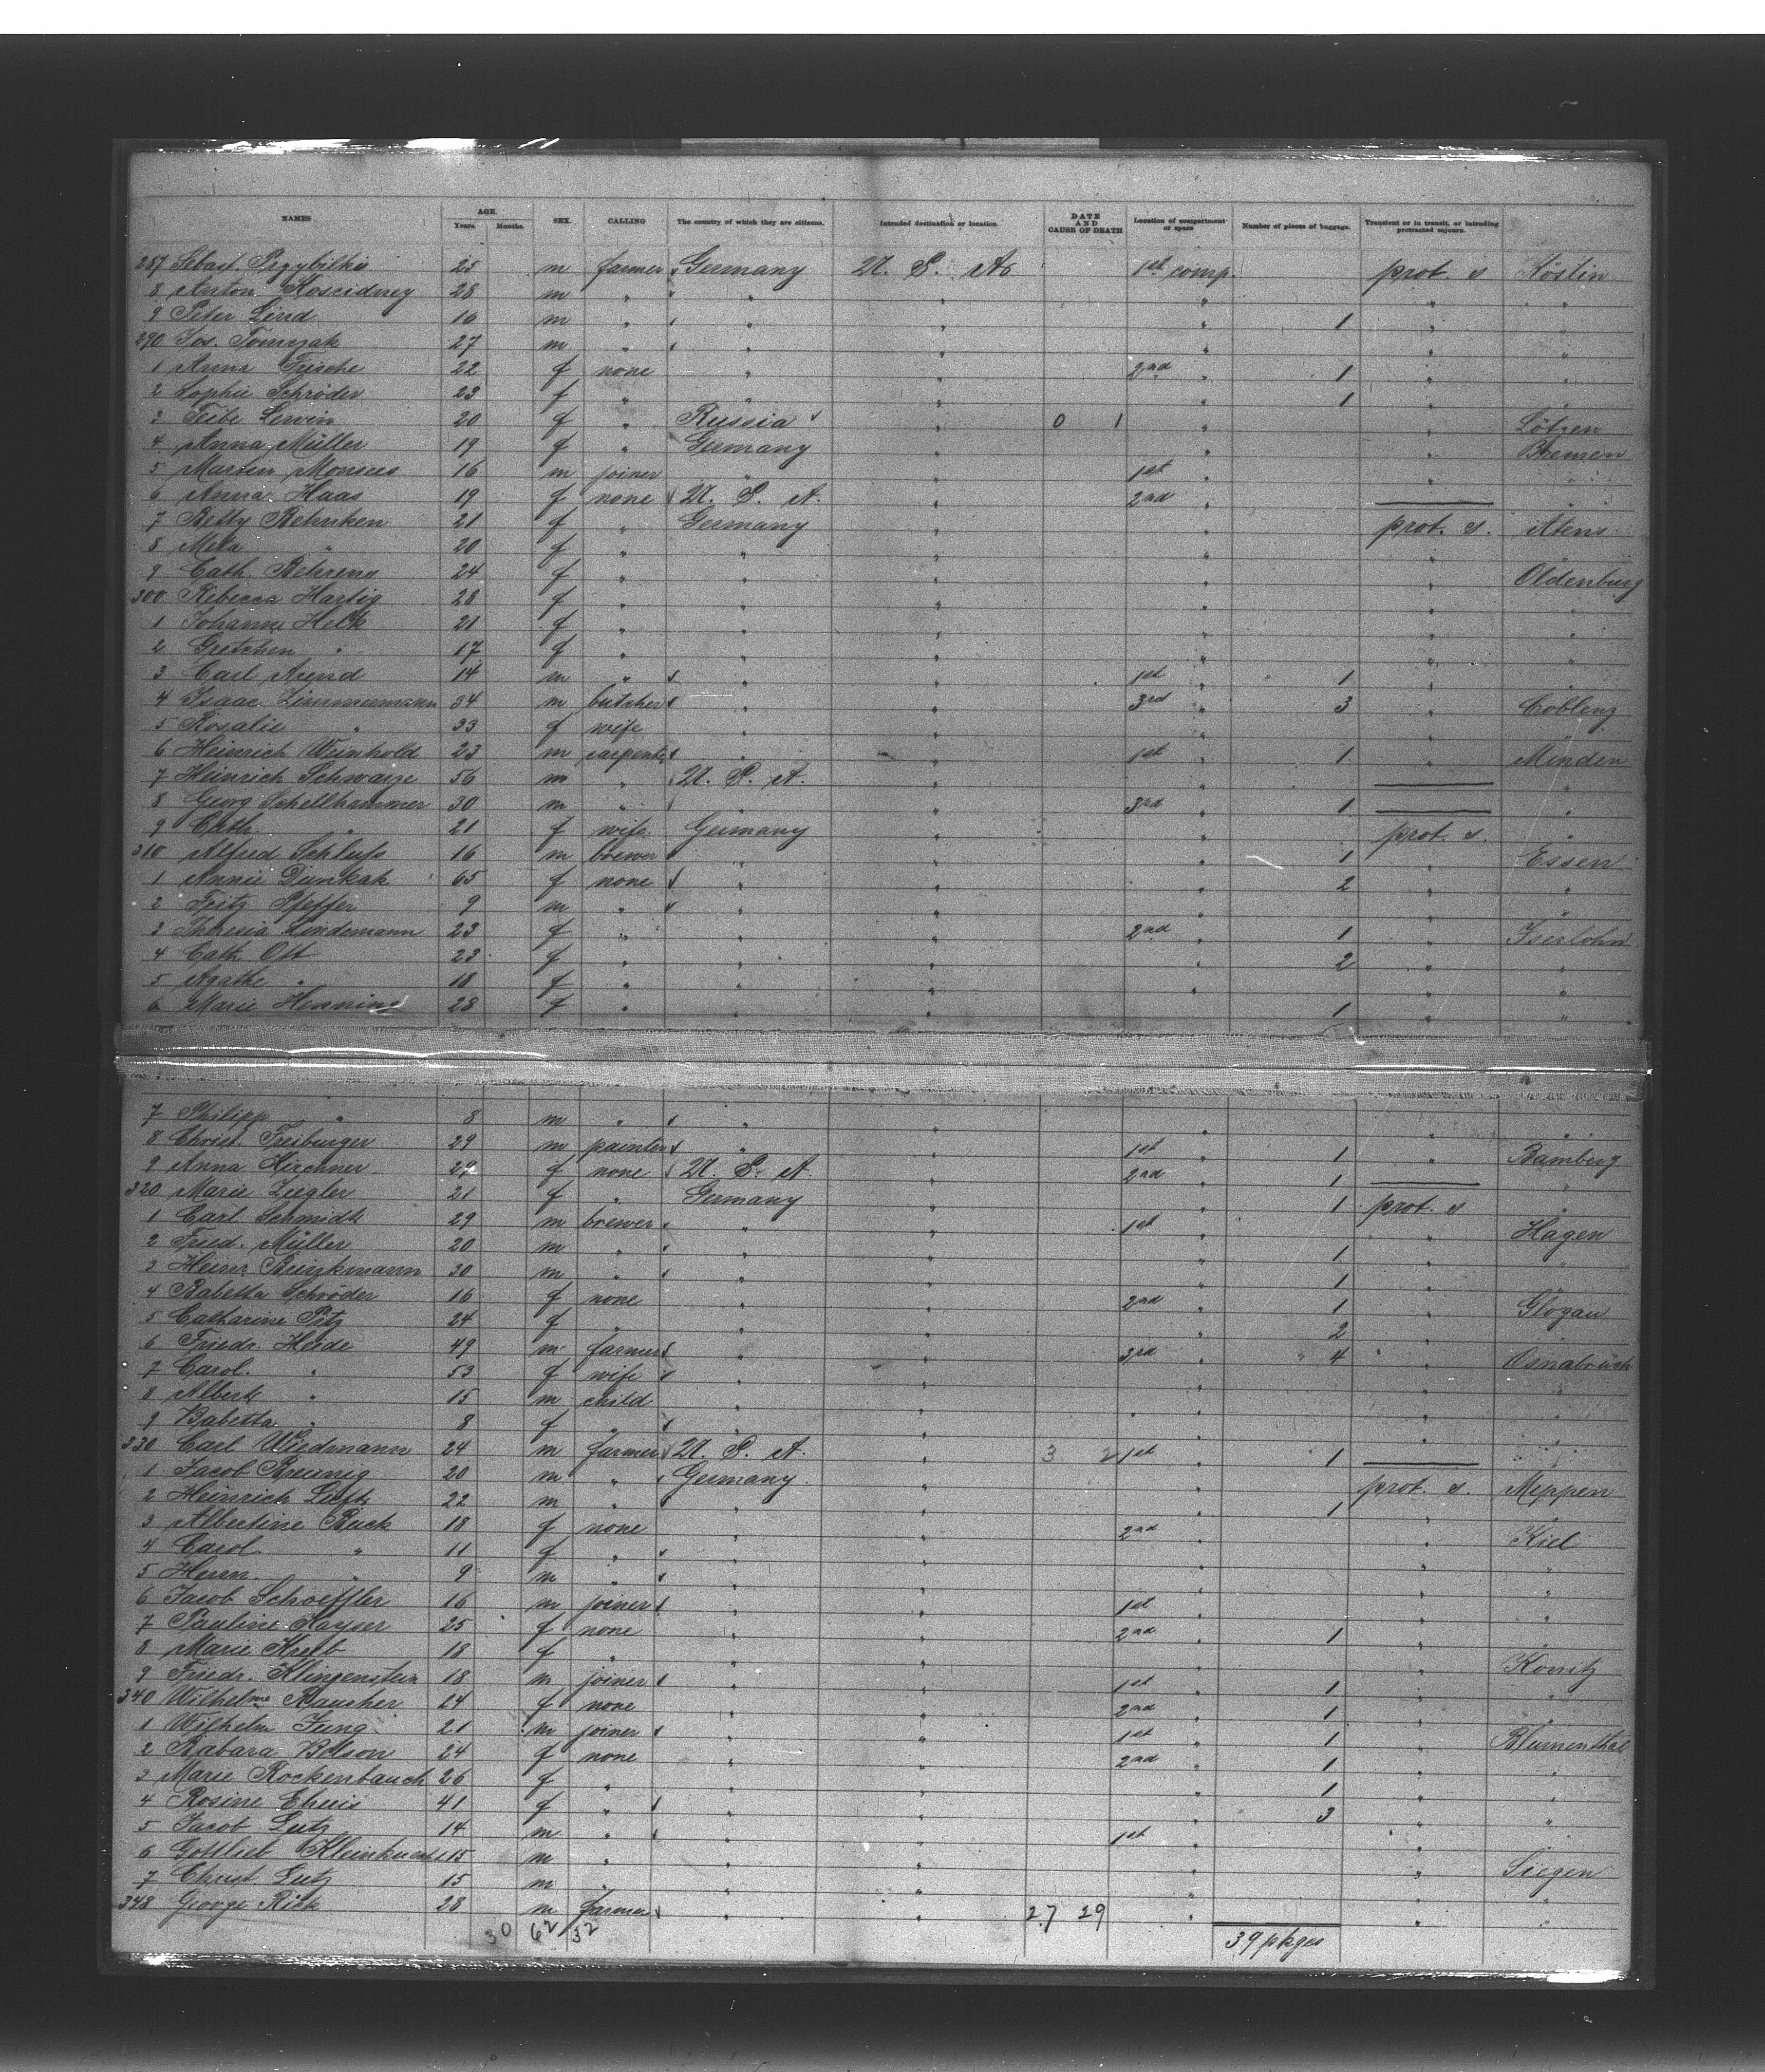 NAMES AGE. Years. Months. SEX. CALLING The country of which they are citizens. Intended destination or location. DATE AND CAUSE OF DEATH Location of compartment or space Number of pieces of baggage. Transient or in transit, or intending protracted sojourn.
287 Sebast. Przybilkis 25 m farmer Germany U. S. A. 1st comp. prot. s Köslin
8 Anton 28 m " " " " " " "
9 Peter Lind 16 m " " " " 1 " "
290 Jos. Tomczak 27 m " " " " " "
1 Anna Frische 22 f none " " 2nd " 1 " "
2 Sophie Schröder 23 f " " " " 1 " "
3 Feibe Lewin 20 f " Russia " 0 1 " " Lötzen
4 Anna Müller 19 f " Germany " " " Bremen
5 Martin Monsees 16 m joiner " " 1st " " "
6 Anna Haas 19 f none U. S. A. " 2nd " "
7 Betty Behnken 21 f " Germany " " prot. s. Atens
8 Meta " 20 f " " " " " "
9 Cath. Behrens 24 f " " " " " Oldenburg
300 Rebecca Hartig 28 f " " " " " "
1 Johanne Helk 21 f " " " " " "
2 Gretchen " 17 f " " " " " "
3 Carl Arend 14 m " " " 1st " 1 " "
4 Isaac Zimmermann 34 m butcher " " 3rd " 3 " Coblenz
5 Rosalie " 33 f wife " " " " "
6 Heinrich Weinhold 23 m carpenter " " 1st " 1 " Minden
7 Heinrich Schwarze 56 m " U. S. A. " " "
8 Georg Schellhammer 30 m " " " 3rd " 1 "
9 Cath. " 21 f wife Germany " " prot. s. "
310 Alfred Schluss 16 m brewer " " " 1 " Essen
1 Annie Dunkak 65 f none " " " 2 " "
2 Fritz Pfeffer 9 m " " " " " "
3 Theresia Lindemann 23 f " " " 2nd " 1 " Iserlohn
4 Cath. Ott 23 f " " " " 2 " "
5 Agathe " 18 f " " " " " "
6 Marie Henning 28 f " " " 1 " "
7 Philipp " 8 m " " " " " "
8 Christ. Freiburger 29 m painter " " 1st " 1 " Bamberg
9 Anna Kirchner 24 f none U. S. A. " 2nd " 1 "
320 Marie Ziegler 21 f " Germany " " 1 prot. s "
1 Carl Schmidt 29 m brewer " " 1st " " Hagen
2 Fried. Müller 20 m " " " " 1 " "
3 Heinr. 30 m " " " " 1 " "
4 Babetta Schröder 16 f none " " 2nd " 1 " Glogau
5 Catharine Pitz 24 f " " " " 2 " "
6 Friedr. Heide 49 m farmer " " 3rd " 4 " Osnabrück
7 Carol. " 53 f wife " " " " "
8 Albert " 15 m child " " " " "
9 Babetta " 8 f " " " " " "
330 Carl Wiedmann 24 m farmer U. S. A. " 3 2 1st " 1 "
1 Jacob Breunig 20 m " Germany " " prot. s. Meppen
2 Heinrich 22 m " " " " 1 " "
3 Albertine Buck 18 f none " " 2nd " " Kiel
4 Carol. " 11 f " " " " " "
5 Herm. " 9 m " " " " " "
6 Jacob Schoeffler 16 m joiner " " 1st " " "
7 Pauline Kayser 25 f none " " 2nd " 1 " "
8 Marie 18 f " " " " " Konitz
9 Friedr. Klingenstein 18 m joiner " " 1st " 1 " "
340 Wilhelme Rauscher 24 f none " " 2nd " 1 " "
1 Wilhelm Jung 21 m joiner " " 1st " 1 " Blumenthal
2 Babara 24 f none " " 2nd " 1 " "
3 Marie Rockenbauch 26 f " " " " 1 " "
4 Rosine 41 f " " " " 3 " "
5 Jacob Lutz 14 m " " " 1st " " "
6 Gottlieb Kleinknecht 15 m " " " " " Siegen
7 Christ Lutz 15 m " " " " " "
348 George Rick 28 m farmer " " 27 29 " " "
30 62 32 39 pkges